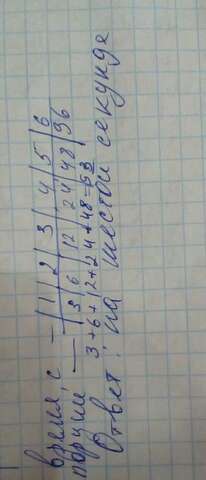 время, с — | 1 | 2 | 3 | 4 | 5 | 6
порции — | 3 | 6 | 12 | 24 | 48 | 96
3+6+12+24+48=93
Ответ: на шестой секунде